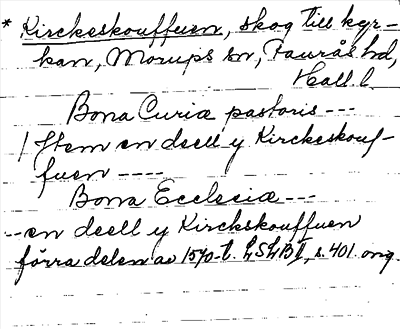 * Kirckeskouffuen, skog till kyr-
kan, Morups sn, Faurås hd,
Hall l.
Bona Curiæ pastoris ---
/ Item en deell y Kirckeskouf-
fuen ----
Bona Ecclesiæ ---
-- en deell y Kirckskouffuen
förra delen av 1570-t. LSLB I, s. 401 orig.